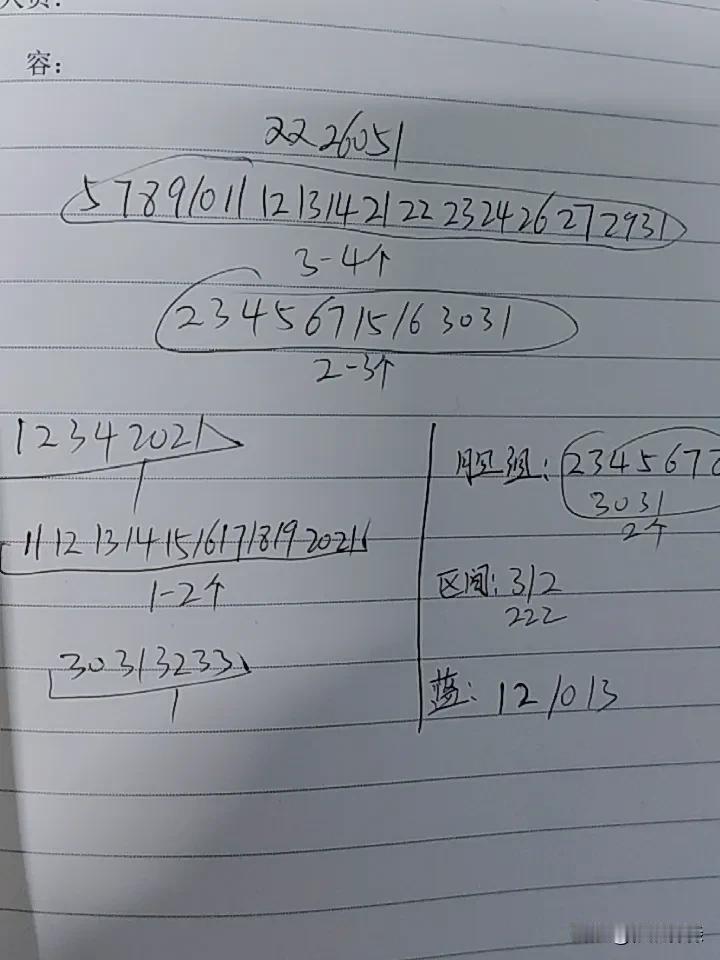 容：
2226051
5 7 8 9 10 11 12 13 14 21 22 23 24 26 27 29 31
3-4个
2 3 4 5 6 7 15 16 30 31
2-3个
1 2 3 4 20 21
1
11 12 13 14 15 16 17 18 19 20 21
1-2个
30 31 32 33
1
胆组：2 3 4 5 6 7
30 31
2个
区间：312
222
蓝：12 10 13